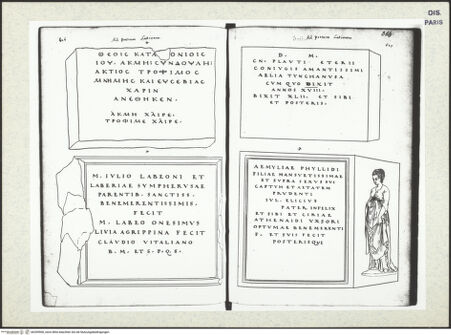 DIS.
PARIS
Ad portam Latinam
ΘΕΟΙΣ ΚΑΤΑ ΟΝΙΟΙΣ
ΙΟΥ. ΑΚΜΗ ΣΥΝΔΟΥΛΗ
ΑΚΤΙΟΣ ΤΡΟΦΙΜΟΣ
ΜΝΗΜΗΣ ΚΑΙ ΕΥΣΕΒΙΑΣ
ΧΑΡΙΝ
ΑΝΕΘΗΚΕΝ.
ΑΚΜΗ ΧΑΙΡΕ.
ΤΡΟΦΙΜΕ ΧΑΙΡΕ.
M. IVLIO LABEONI ET
LABERIAE SYMPHERVSAE
PARENTIB. SANCTISS.
BENEMERENTISSIMIS.
FECIT
M. LABEO ONESIMVS
LIVIA AGRIPPINA FECIT
CLAVDIO VITALIANO
B. M. ET S. P. Q. E.
Ad portam Latinam
D. M.
CN. PLAVTI ETERIS
CONIVGIS AMANTISSIMI
AELIA TYNCHANVSA
CVM QVO BIXIT
ANNOS XVIII.
BIXIT XLII. ET SIBI
ET POSTERIS.
AEMYLIAE PHYLLIDI
FILIAE MANSVETISSIMAE
ET SVPRA SEXVS SVI
CAPTVM ET AETATEM
PRVDENTI
IVL. ELICIVS
PATER INFELIX
ET SIBI ET CIRIAE
ATHENAIDI VXSORI
OPTVMAE BENEMERENTI
F. ET SVIS FECIT
POSTERISQVE